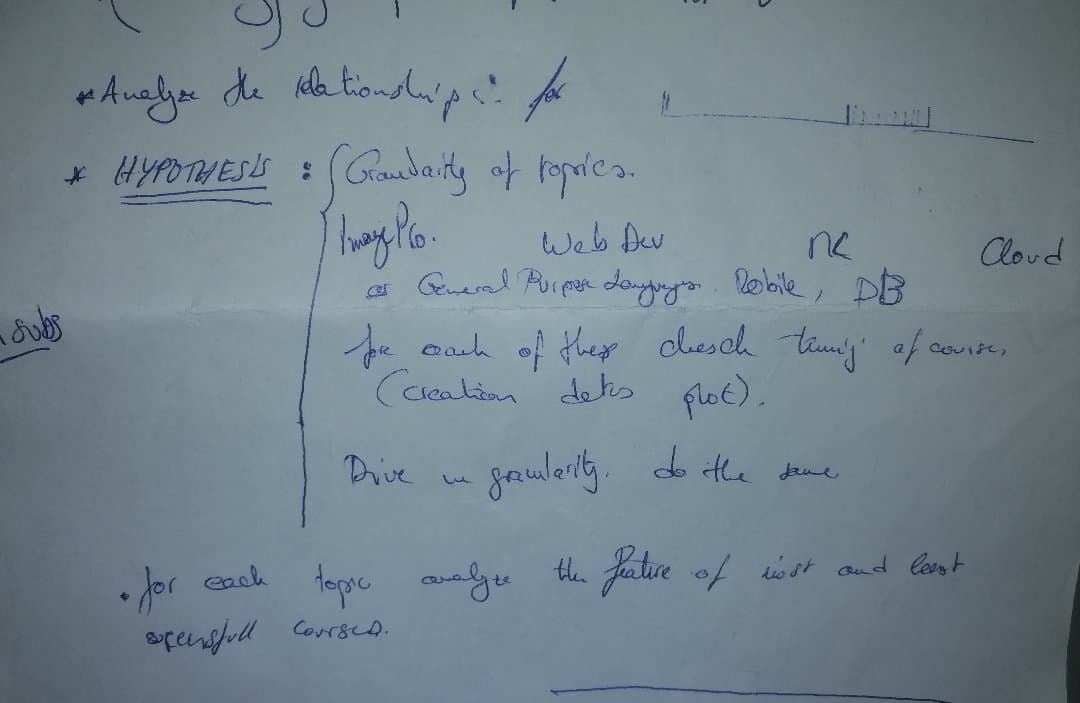 * Analyze the relationships : for
* HYPOTHESIS : Granularity of topics.
Image Pro. Web Dev Cloud
General Purpose Languages. Mobile, DB
subs
for each of these check timing of course,
(creation dates plot).
Drive in granularity. do the same
. for each topic analyze the feature of most and least
courses.